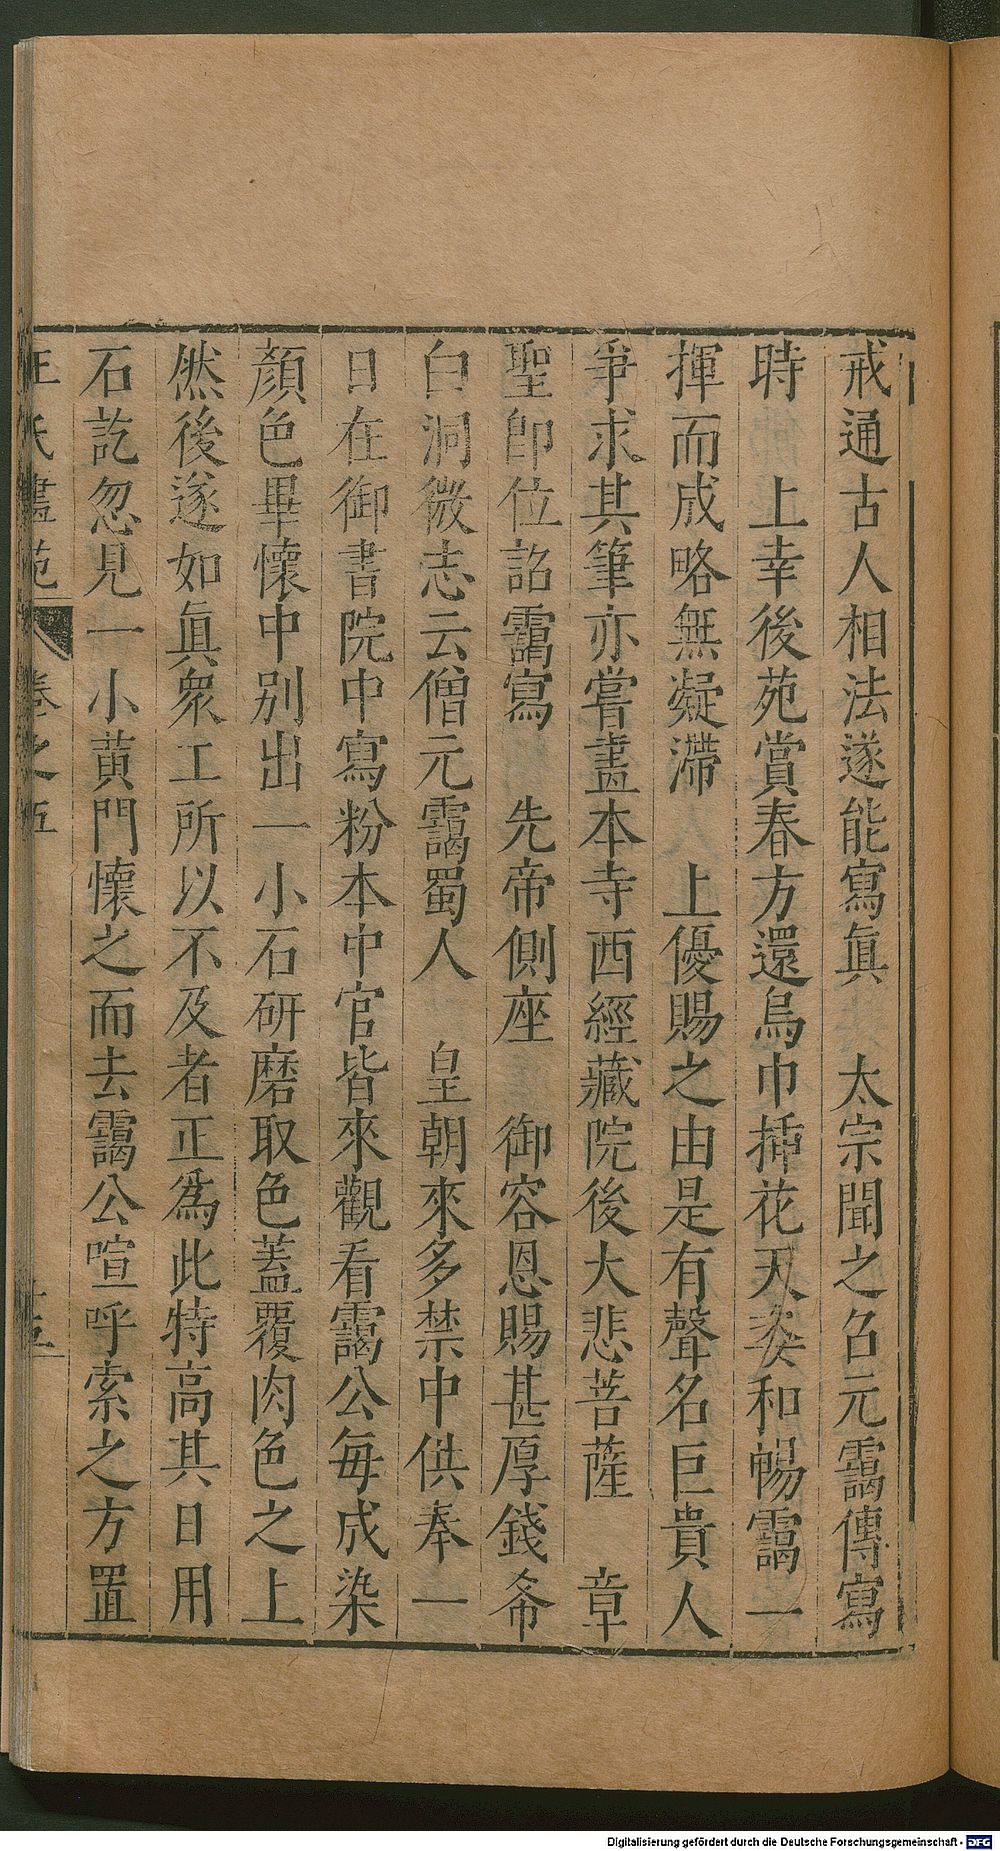 戒通古人相法遂能寫眞　太宗聞之召元靄傳寫
時　上幸後苑賞春方還烏巾揷花天姿和暢靄一
揮而成略無凝滯　上優賜之由是有聲名巨貴人
爭求其筆亦嘗畫本寺西經藏院後大悲菩薩　章
聖卽位詔靄寫　先帝側座　御容恩賜甚厚錢希
白洞微志云僧元靄蜀人　皇朝來多禁中供奉一
日在御書院中寫粉本中官皆來觀看靄公每成染
顏色畢懷中別出一小石研磨取色蓋覆肉色之上
然後遂如眞衆工所以不及者正爲此特高其日用
石訖忽見一小黃門懷之而去靄公喧呼索之方置
王氏畫苑　卷之五　十五
Digitalisierung gefördert durch die Deutsche Forschungsgemeinschaft - DFG